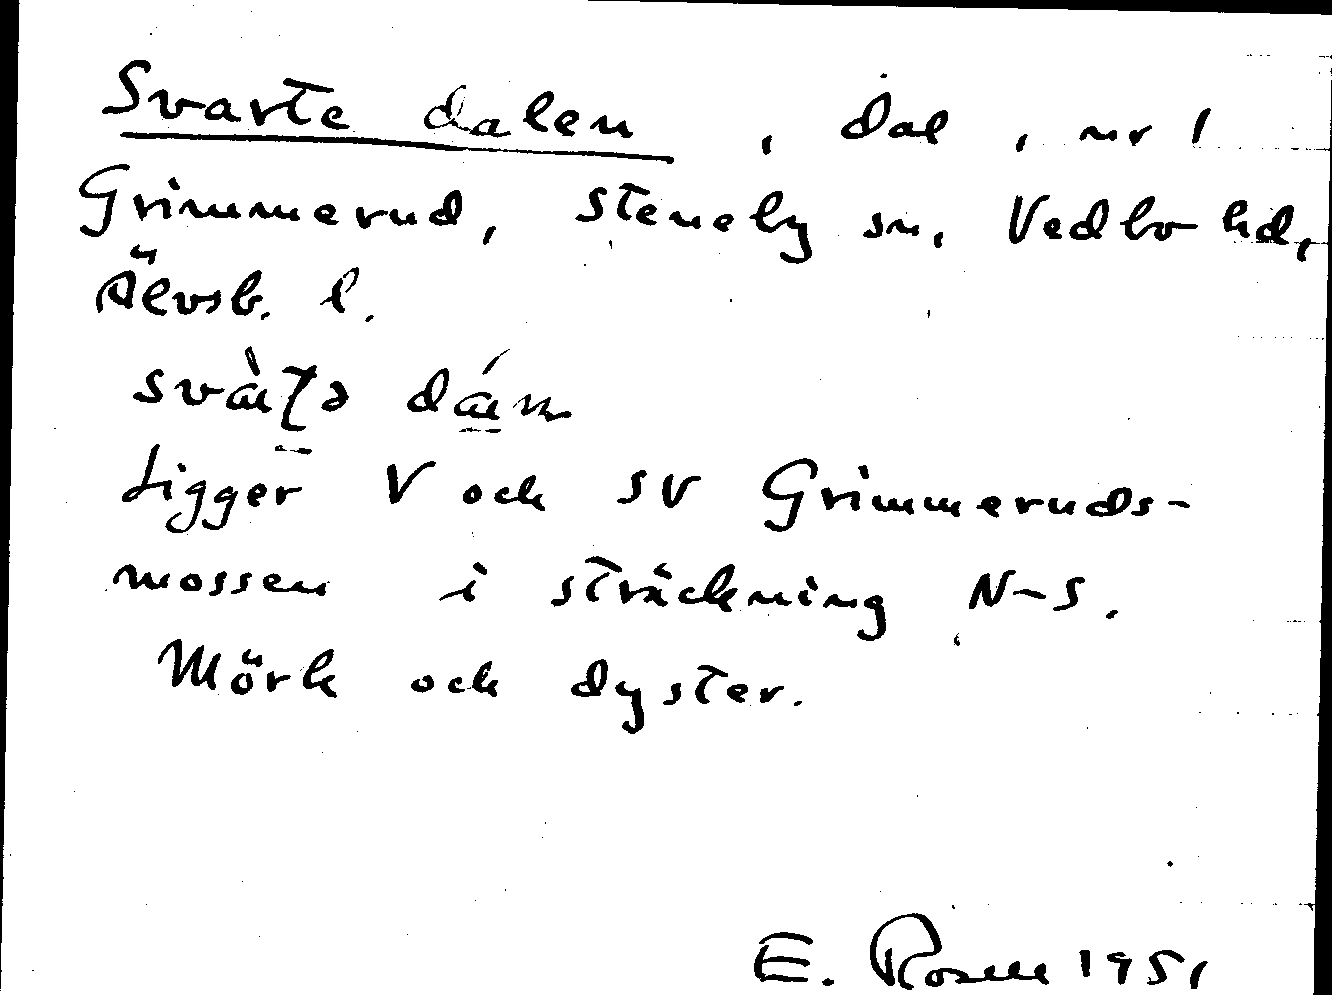 Svarte dalen, dal, nr 1
Grimmerud, Steneby sn, Vedbo hd,
Älvsb. l.
Ligger V och SV Grimmeruds-
mossen i sträckning N-S.
Mörk och dyster.
E. Rosell 1951